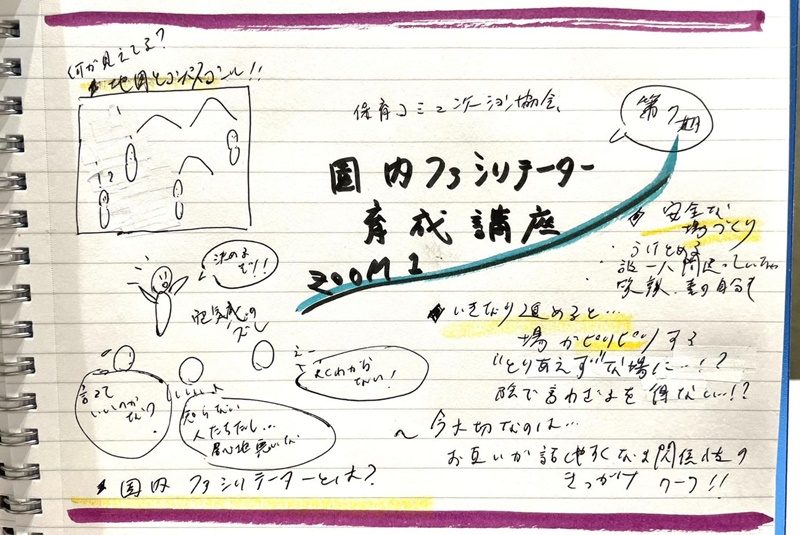 何が見えてる?
地図とコンパスゴール!!
保育コミュニケーション協会、
第7期
園内ファシリテーター
育成講座
ZOOM1
安全な
場づくり
うけとめる
誰一人間違っていない
笑顔、素の自分も
決める
ぞり!!
温気感のズレ
いきなり進めると…
場がピリピリする
"とりあえず"な場に…!?
陰で言わざるを得ない…!?
言って
いいのかな?
知らない
人たちだし…
居心地悪いな
えー
よくわから
ない!
〜 今大切なのは…
お互いが話しやすくなる関係性の
きっかけワーク!!
園内ファシリテーターとは?